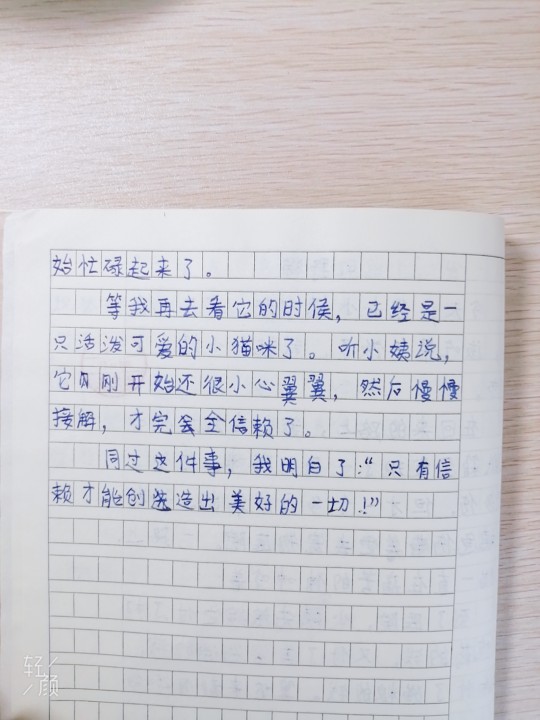 始忙碌起来了。
等我再去看它的时候，已经是一
只活泼可爱的小猫咪了。听小姨说，
它刚开始还很小心翼翼，然后慢慢
接解，才完全信赖了。
同过这件事，我明白了：“只有信
赖才能创造出美好的一切！”
轻
颜